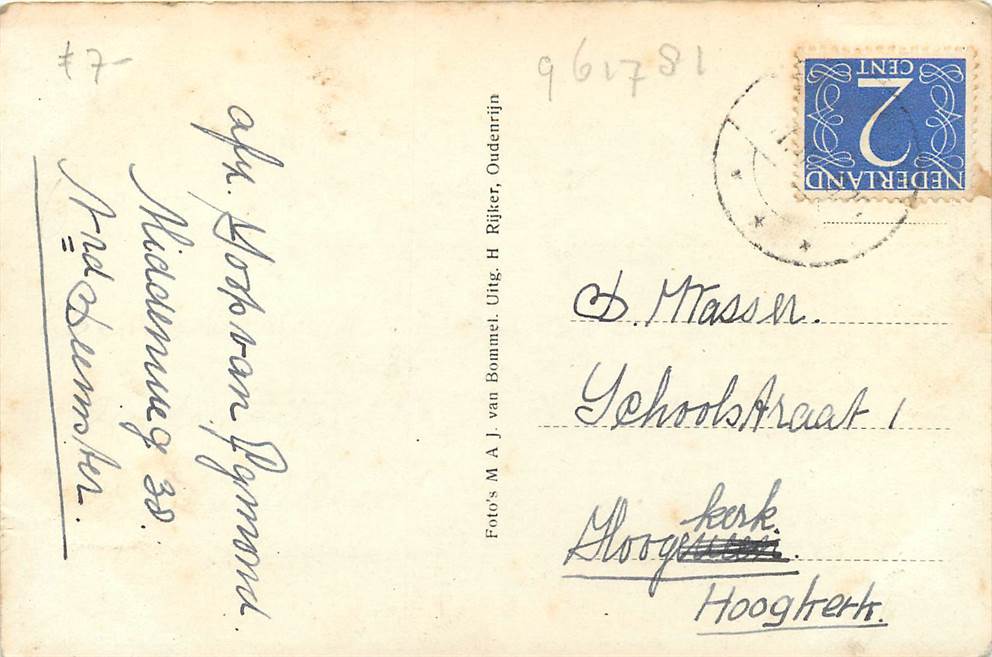 ≠ 7-
961781
NEDERLAND
2
CENT
afz. Joop van Egmond.
Middenweg 38.
Nrd Beemster.
Foto's M A J. van Bommel. Uitg. H Rijker, Oudenrijn
D. Wasser.
Schoolstraat 1
kerk.
Hooge
Hoogkerk.